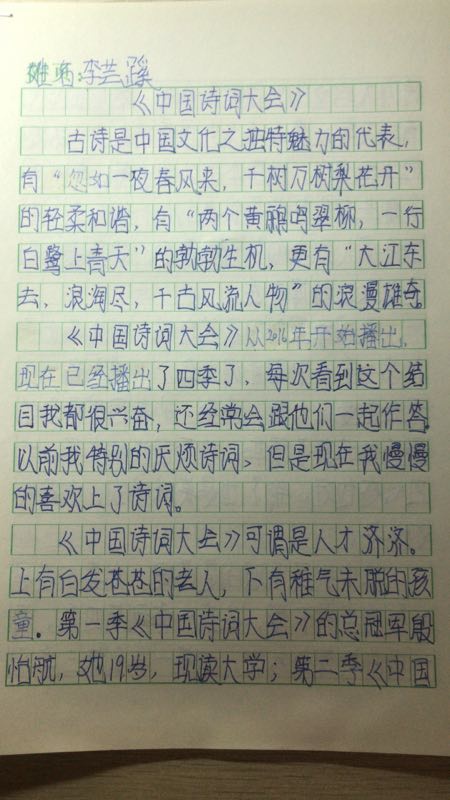 雒晤:李芸蹊
《中国诗词大会》
古诗是中国文化之独特魅力的代表,
有“忽如一夜春风来,千树万树梨花开”
的轻柔和谐,有“两个黄鹂鸣翠柳,一行
白鹭上青天”的勃勃生机,更有“大江东
去,浪淘尽,千古风流人物”的浪漫雄奇。
《中国诗词大会》从2016年开始播出,
现在已经播出了四季了,每次看到这个节
目我都很兴奋,还经常会跟他们一起作答。
以前我特别的厌烦诗词,但是现在我慢慢
的喜欢上了诗词。
《中国诗词大会》可谓是人才济济。
上有白发苍苍的老人,下有稚气未脱的孩
童。第一季《中国诗词大会》的总冠军殷
怡航,她19岁,现读大学;第二季《中国